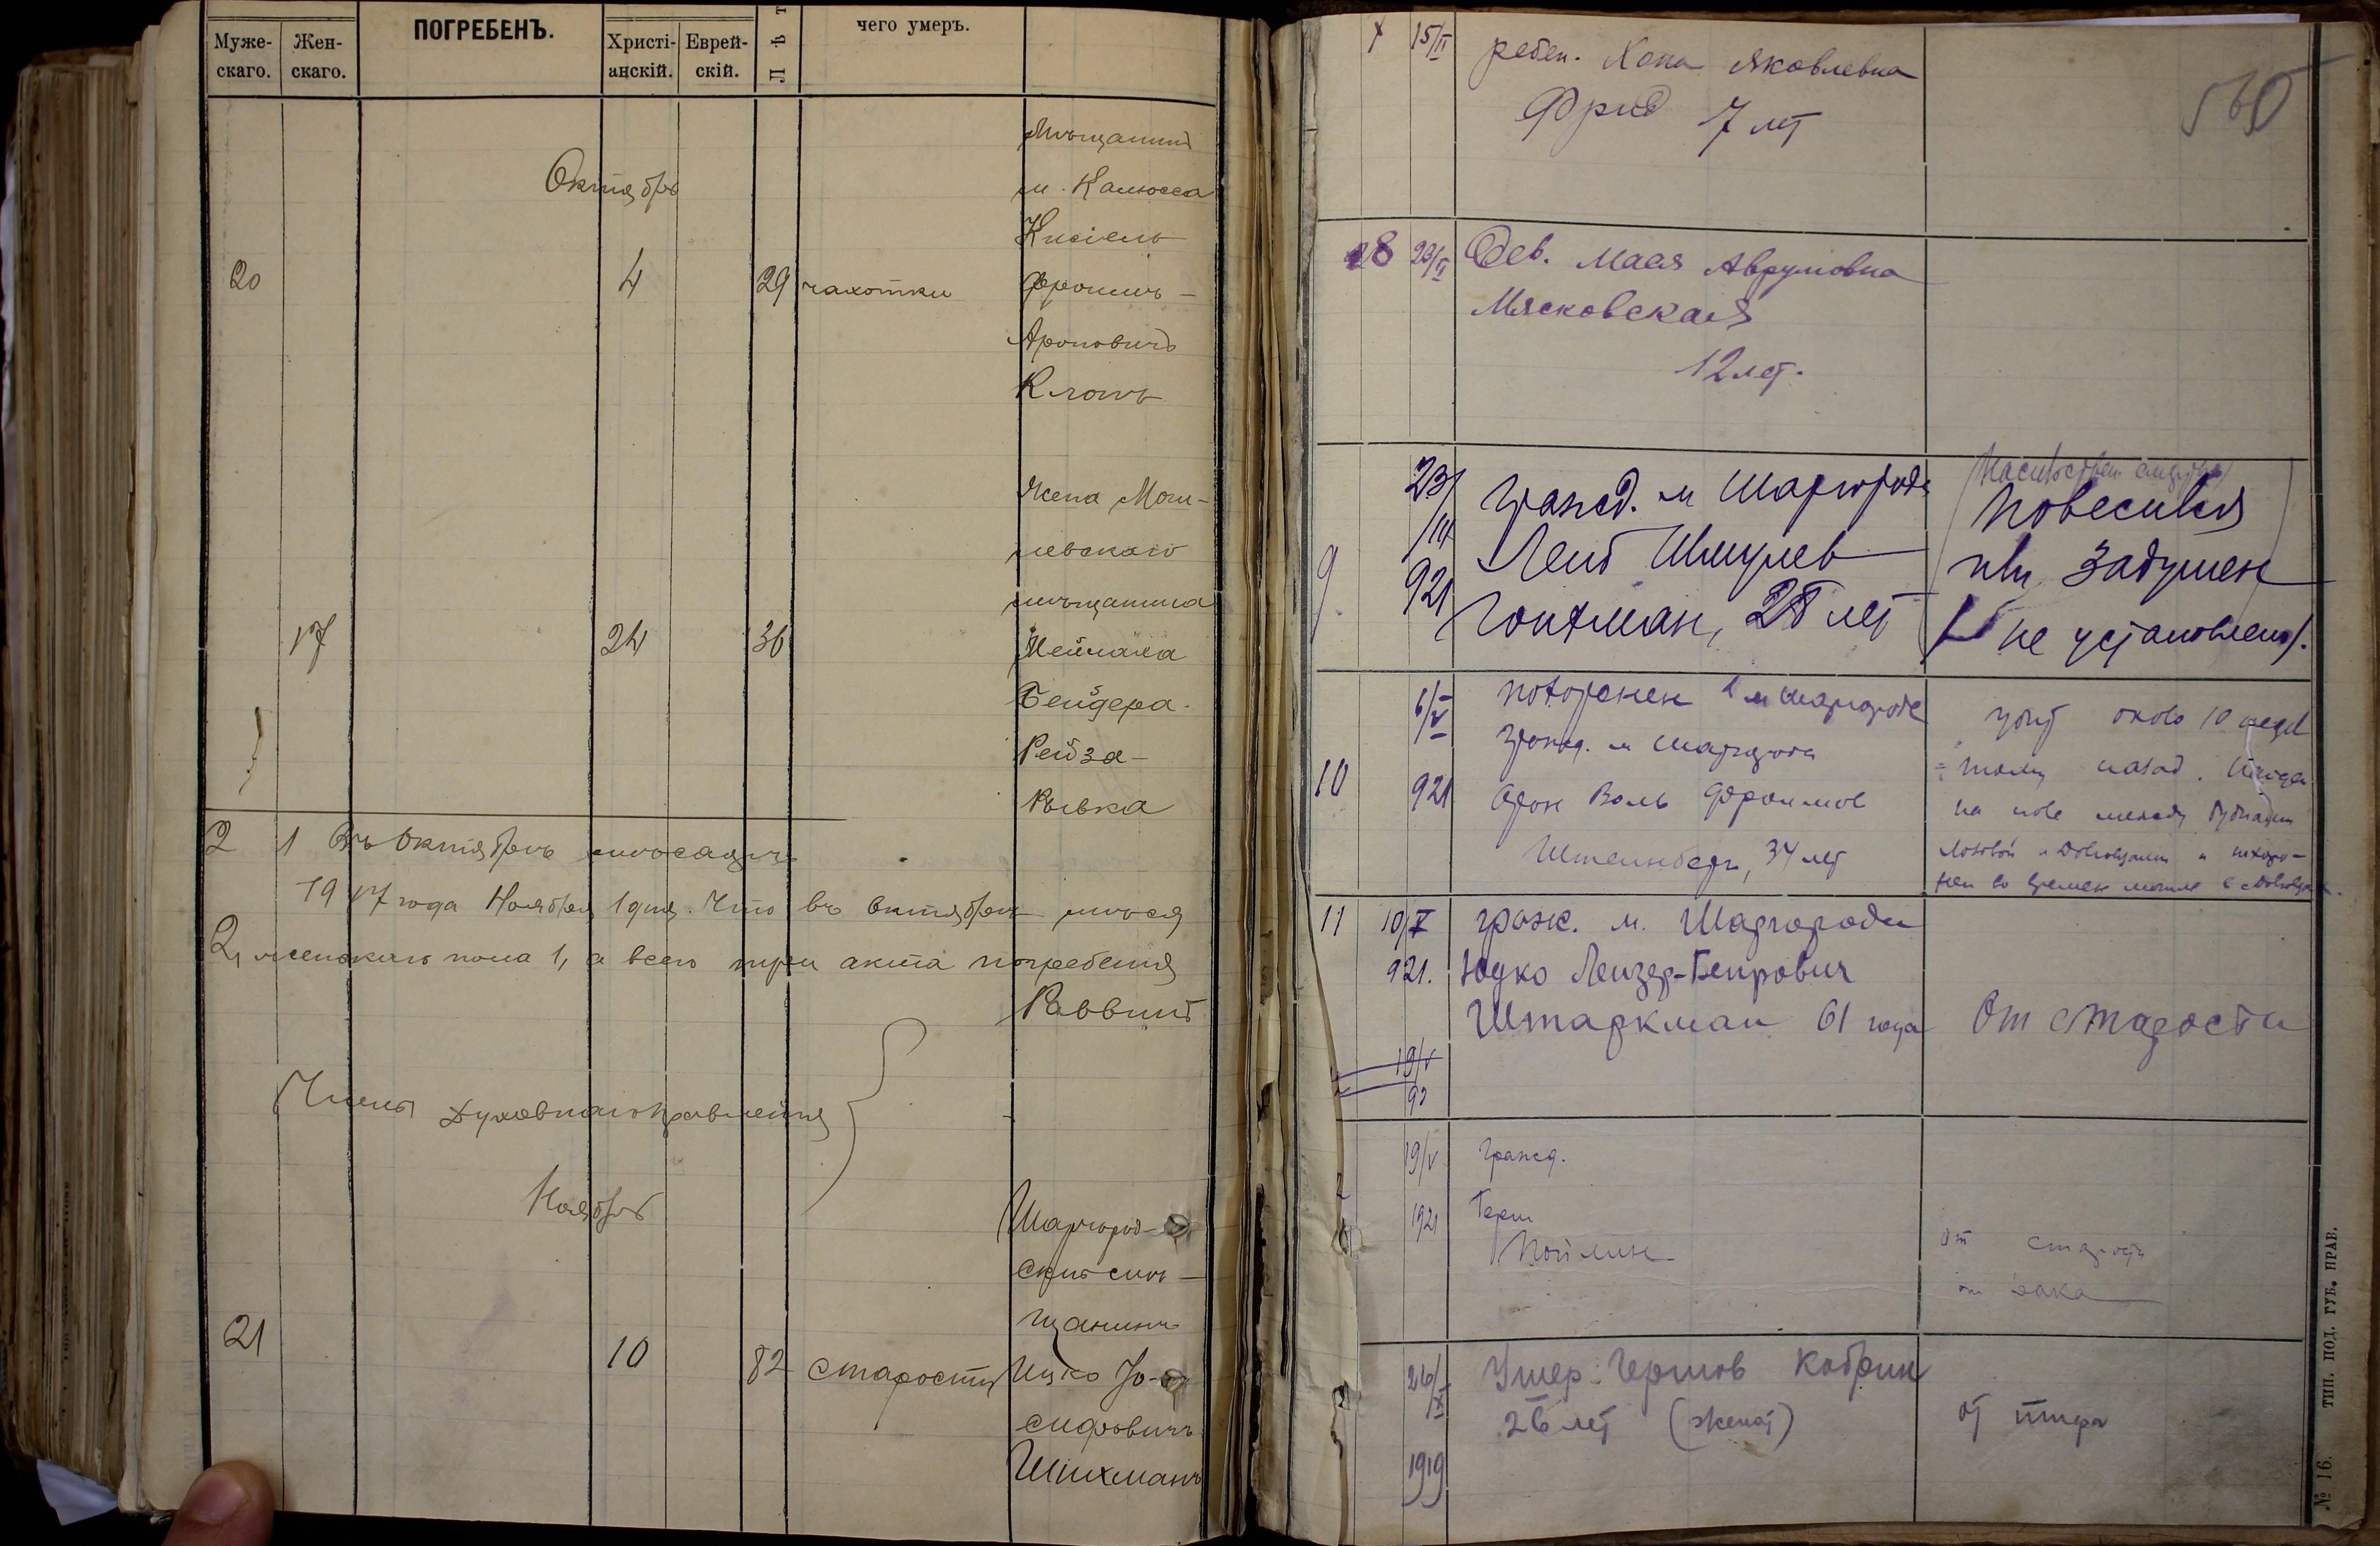 Муже-
скаго.
Жен-
скаго.
ПОГРЕБЕНЪ.
Христі-
анскій.
Еврей-
скій.
Лѣт
чего умеръ.
Октябрь
20 4 29 чахотки
Мѣщанинъ
м. Калюсса
Кисіель
Фроимъ-
Ароновичъ
Клоцъ
17 24 36
Жена Моги-
левскаго
мѣщанина
Мейлаха
Бендера
Рейза-
Рывка
2 1 Въ Октябрѣ мѣсяцѣ
1917 года Ноября 1 дня. Что въ октябрѣ мѣсяц
2, женскаго пола 1, а всего три акта погребенія
Раввинъ
Члены Духовнаго правленія
Ноябрь
21 10 82 старости
Шаргород-
скій мѣ-
щанинъ
Ицко Іо-
сифовичъ
Шихманъ
7 15/II ребен. Хона Яковлевна
Фрид 7 лет
560
8 23/II Дев. Маля Аврумовна
Мясковская
12 лет.
9 23/III 921
гражд. м Шаргорода
Лейб Шмулев
Гойхман, 28 лет
повесился
или задушен
(не установлено).
10 6/V 921
похоронен в м Шаргороде
гражд. м Шаргорода
Арон Воль Фроимов
Штеинберг, 34 лет
убит около 10 недел
тому назад.
на поле между
Лозовой и
11 10/V 921.
граж. м. Шаргорода
Юдко Лейзер-Беирович
Штаркман 61 года
От старости
19/V
92
19/V 1921
гражд.
Герш
Поймин
от старости
от рака
26/IX 1919
Умер Гершов Кобрин
26 лет (женат)
от тифа
№ 16. ТИП. ПОД. ГУБ. ПРАВ.